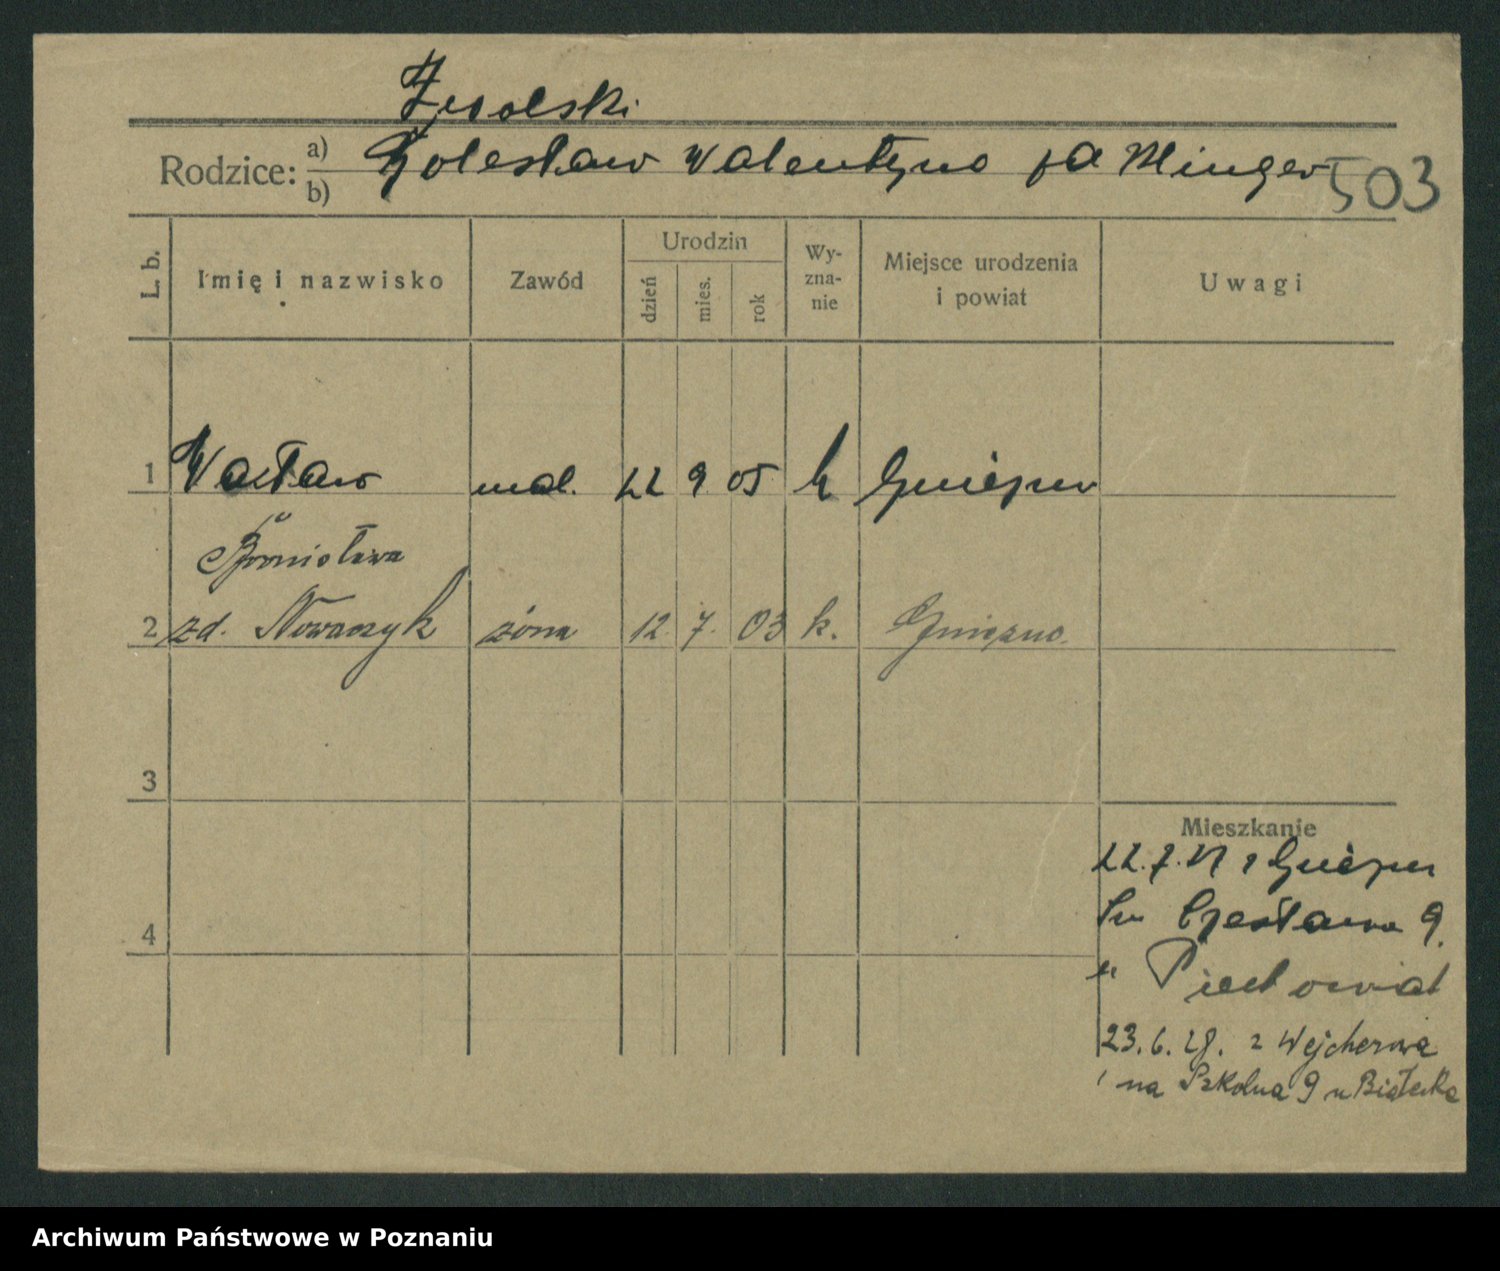 Zwolski
Rodzice: a) b) Bolesław Walentyna zd Minger
503
L. b. Imię i nazwisko Zawód Urodzin dzień mies. rok Wy-zna-nie Miejsce urodzenia i powiat Uwagi
1 Wacław mal. 22 9 05 k Gniezno
Bronisława
2 zd. Nowaczyk żona 12. 7. 03 k. Gniezno.
3
Mieszkanie
22.7.27 z Gniezna
Św Czesława 9.
4
u
23.6.28. z Wejherowa
na Szkolna 9 u Białecka
Archiwum Państwowe w Poznaniu